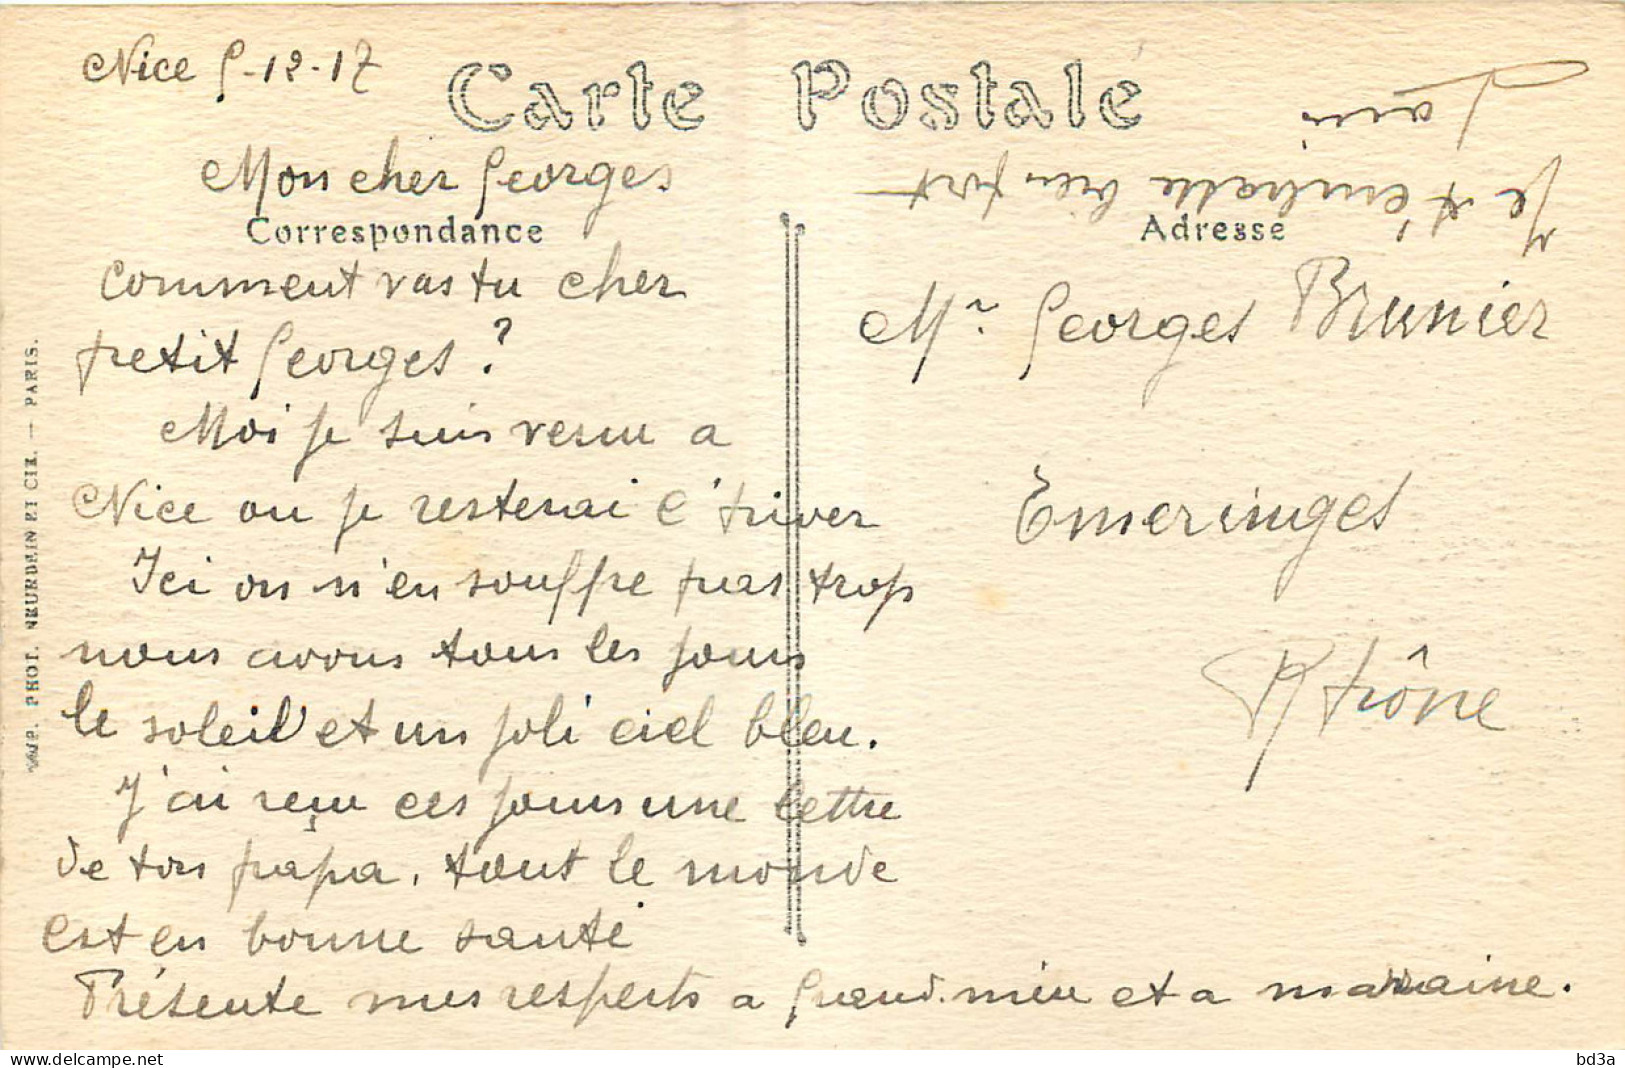 Nice 5-12-17
Carte Postale
Mon cher Georges
Correspondance
Comment vas tu cher
petit Georges ?
Moi je suis venu a
Nice ou je resterai l'hiver
Ici on n'en souffre pas trop
nous avons tous les jours
le soleil et un joli ciel bleu.
J'ai reçu ces jours une lettre
de ton papa. tout le monde
est en bonne santé
Présente mes respects a Grand.mère et a marraine.
Je t'embrasse bien fort
Adresse
Mr. Georges Brunier
Emeringes
Rhône
IMP. PHOT. NEURDEIN ET CIE. — PARIS.
bd3a
www.delcampe.net